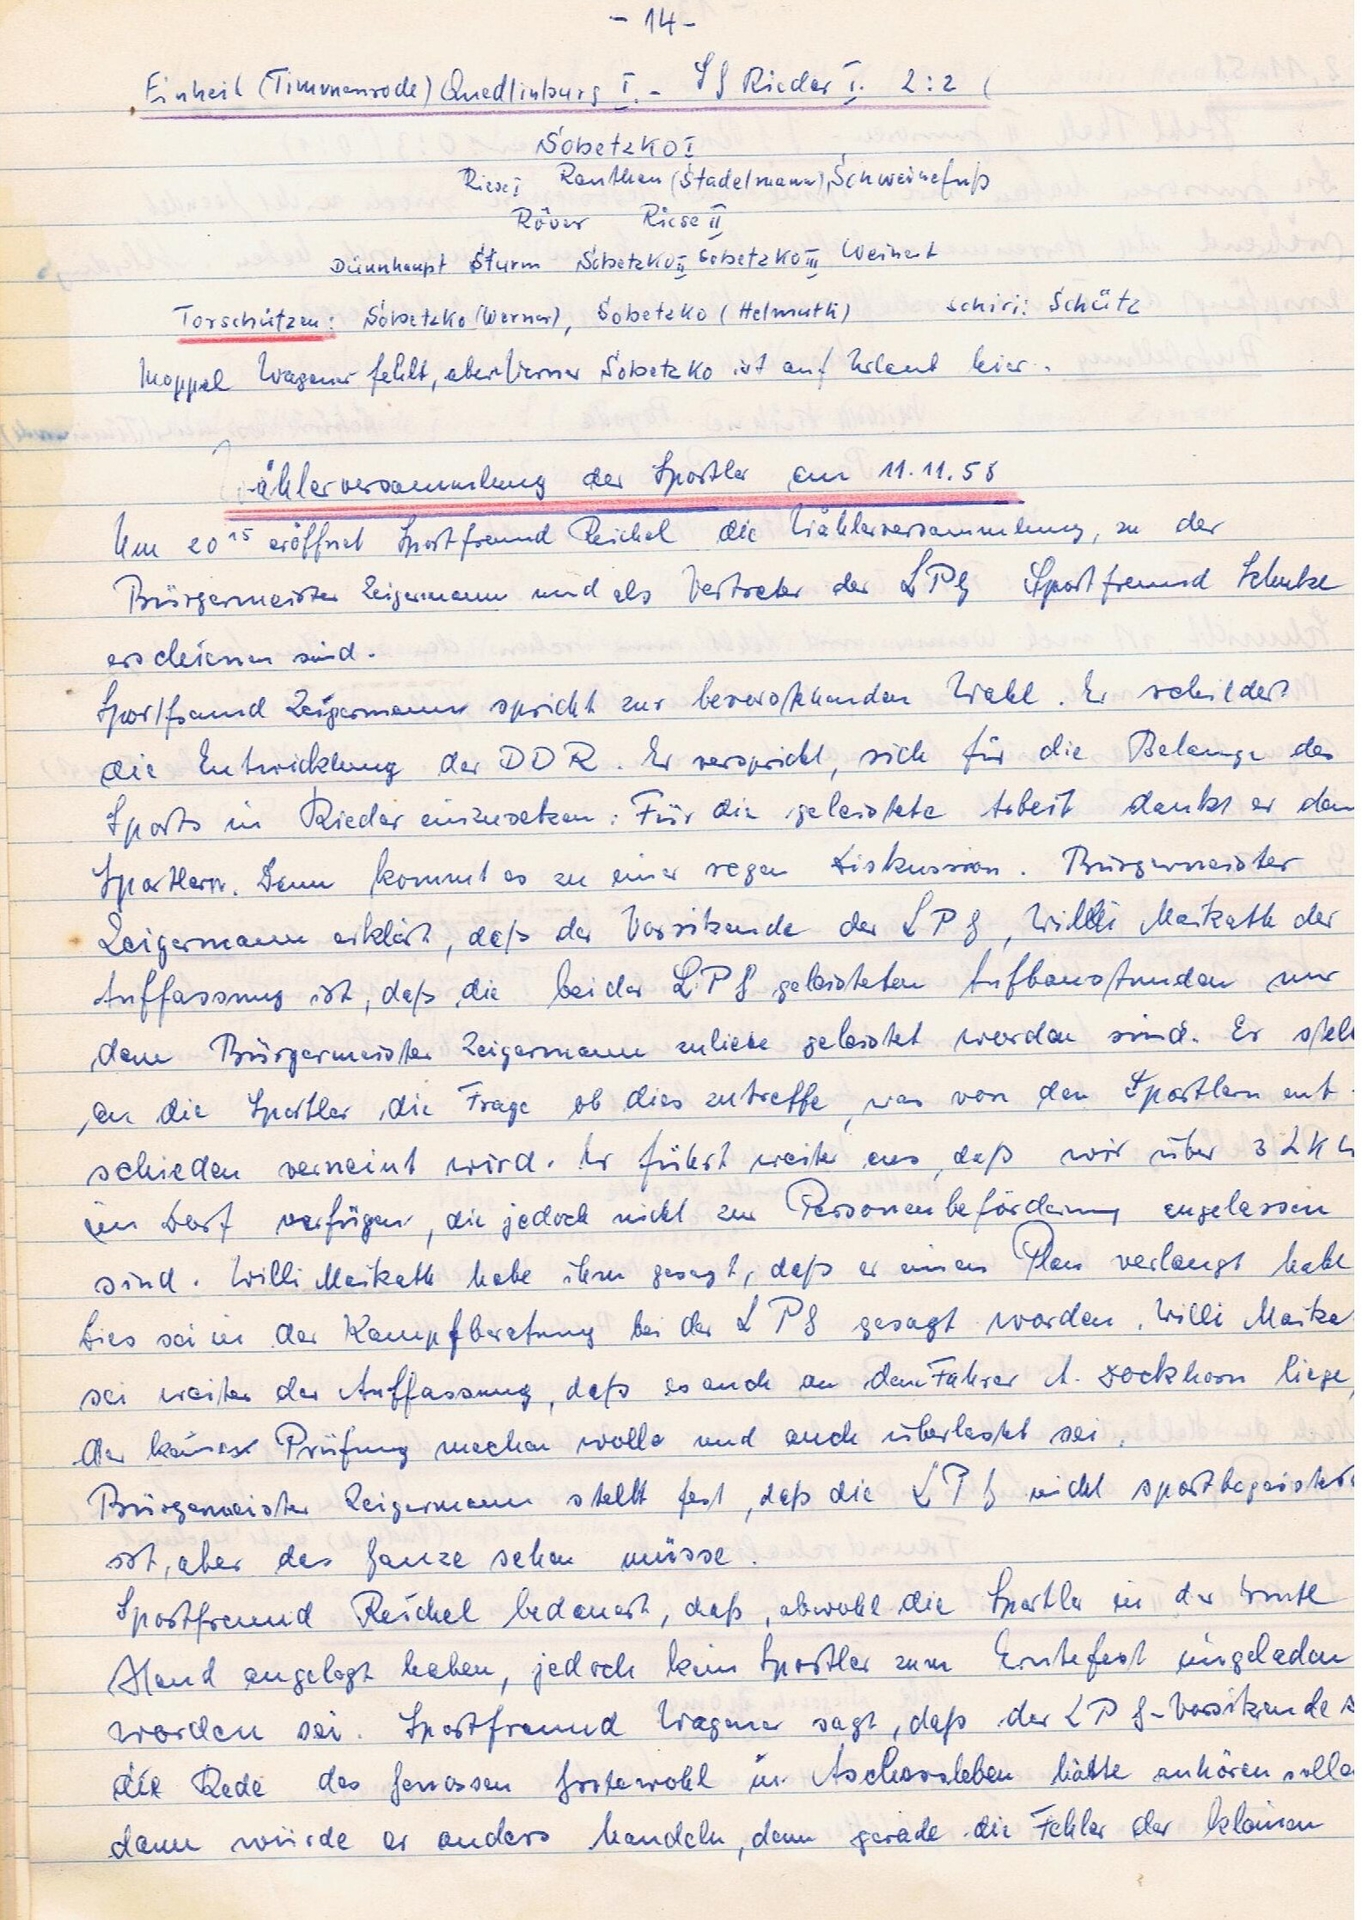 - 14 -
Einheit (Timmenrode) Quedlinburg I. - SG Rieder I. 2:2 (
Sobetzko I
Riese I Ranthen (Stadelmann), Schweinefuß
Röver Riese II
Dünnhaupt Sturm Sobetzko II Sobetzko III Weinert
Torschützen: Sobetzko (Werner), Sobetzko (Helmuth) Schiri: Schütz
Moppel Wagener fehlt, aber Werner Sobetzko ist auf Urlaub hier.
Wählerversammlung der Sportler am 11.11.58
Um 20 15 eröffnet Sportfreund Reichel die Wählerversammlung, zu der
Bürgermeister Zeigermann und als Vertreter der LPG Sportfreund Schulze
erschienen sind.
Sportfreund Zeigermann spricht zur bevorstehenden Wahl. Er schildert
die Entwicklung der DDR. Er verspricht, sich für die Belange des
Sports in Rieder einzusetzen. Für die geleistete Arbeit dankt er den
Sportlern. Dann kommt es zu einer regen Diskussion. Bürgermeister
Zeigermann erklärt, daß der Vorsitzende der LPG, Willi Maikath der
Auffassung ist, daß die bei der LPG geleisteten Aufbaustunden nur
dem Bürgermeister Zeigermann zuliebe geleistet worden sind. Er stell
an die Sportler die Frage ob dies zutreffe, was von den Sportlern ent-
schieden verneint wird. Er führt weiter aus, daß wir über 3 LKW
im Dorf verfügen, die jedoch nicht zur Personenbeförderung zugelassen
sind. Willi Maikath habe ihm gesagt, daß er einen Plan verlangt habe
Dies sei in der Kampfberatung bei der LPG gesagt worden. Willi Maika
sei weiter der Auffassung, daß es auch an dem Fahrer A. Dockhorn liege,
der keine Prüfung machen wolle und auch überlastet sei.
Bürgermeister Zeigermann stellt fest, daß die LPG nicht sportbegeistert
ist, aber das Ganze sehen müsse.
Sportfreund Reichel bedauert, daß, obwohl die Sportler in der Ernte
Hand angelegt haben, jedoch kein Sportler zum Erntefest eingeladen
worden sei. Sportfreund Wagener sagt, daß der LPG-Vorsitzende s
die Rede des Genossen Grotewohl in Aschersleben hätte anhören solle
dann würde er anders handeln, denn gerade die Fehler der kleinen